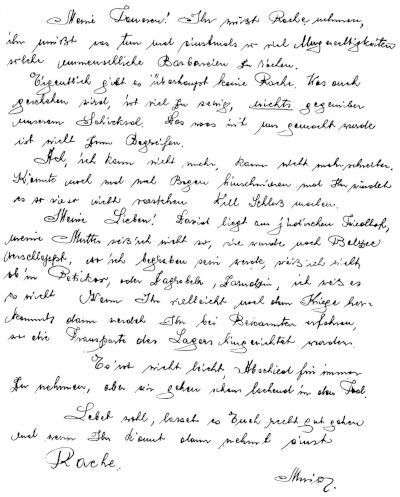 Meine Teueren! Ihr müßt Rache nehmen,
ihr müßt es tun und einstmals so viel Ungerechtigkeiten
solche unmenschliche Barbareien zu rächen.
Eigentlich gibt es überhaupt keine Rache. Was auch
geschehen wird, ist viel zu wenig, nichts gegenüber
unserem Schicksal. Das was mit uns gemacht wurde
ist nicht zum Begreifen.
Ach, ich kann nicht mehr, kann nicht mehr schreiben.
Könnte noch und mal Bogen hinschmieren und Ihr würdet
es so wie so nicht verstehen. Will Schluß machen.
Meine Lieben! David liegt am jüdischen Friedhof,
meine Mutter weiß ich nicht wo, sie wurde nach Belzec
verschleppt, wo ich begraben sein werde, weiß ich nicht
ob in Petikow, oder Zagrobela, ich weiß es
es nicht. Wenn Ihr vielleicht nach dem Kriege her-
kommt, dann werdet Ihr bei Bekannten erfahren,
wo die Transporte des Lagers hingerichtet wurden.
Es ist nicht leicht, Abschied für immer
zu nehmen, aber wir gehen schon lachend in den Tod.
Lebet wohl, lasset es Euch recht gut gehen
und wenn Ihr könnt dann nehmt einst
Rache.